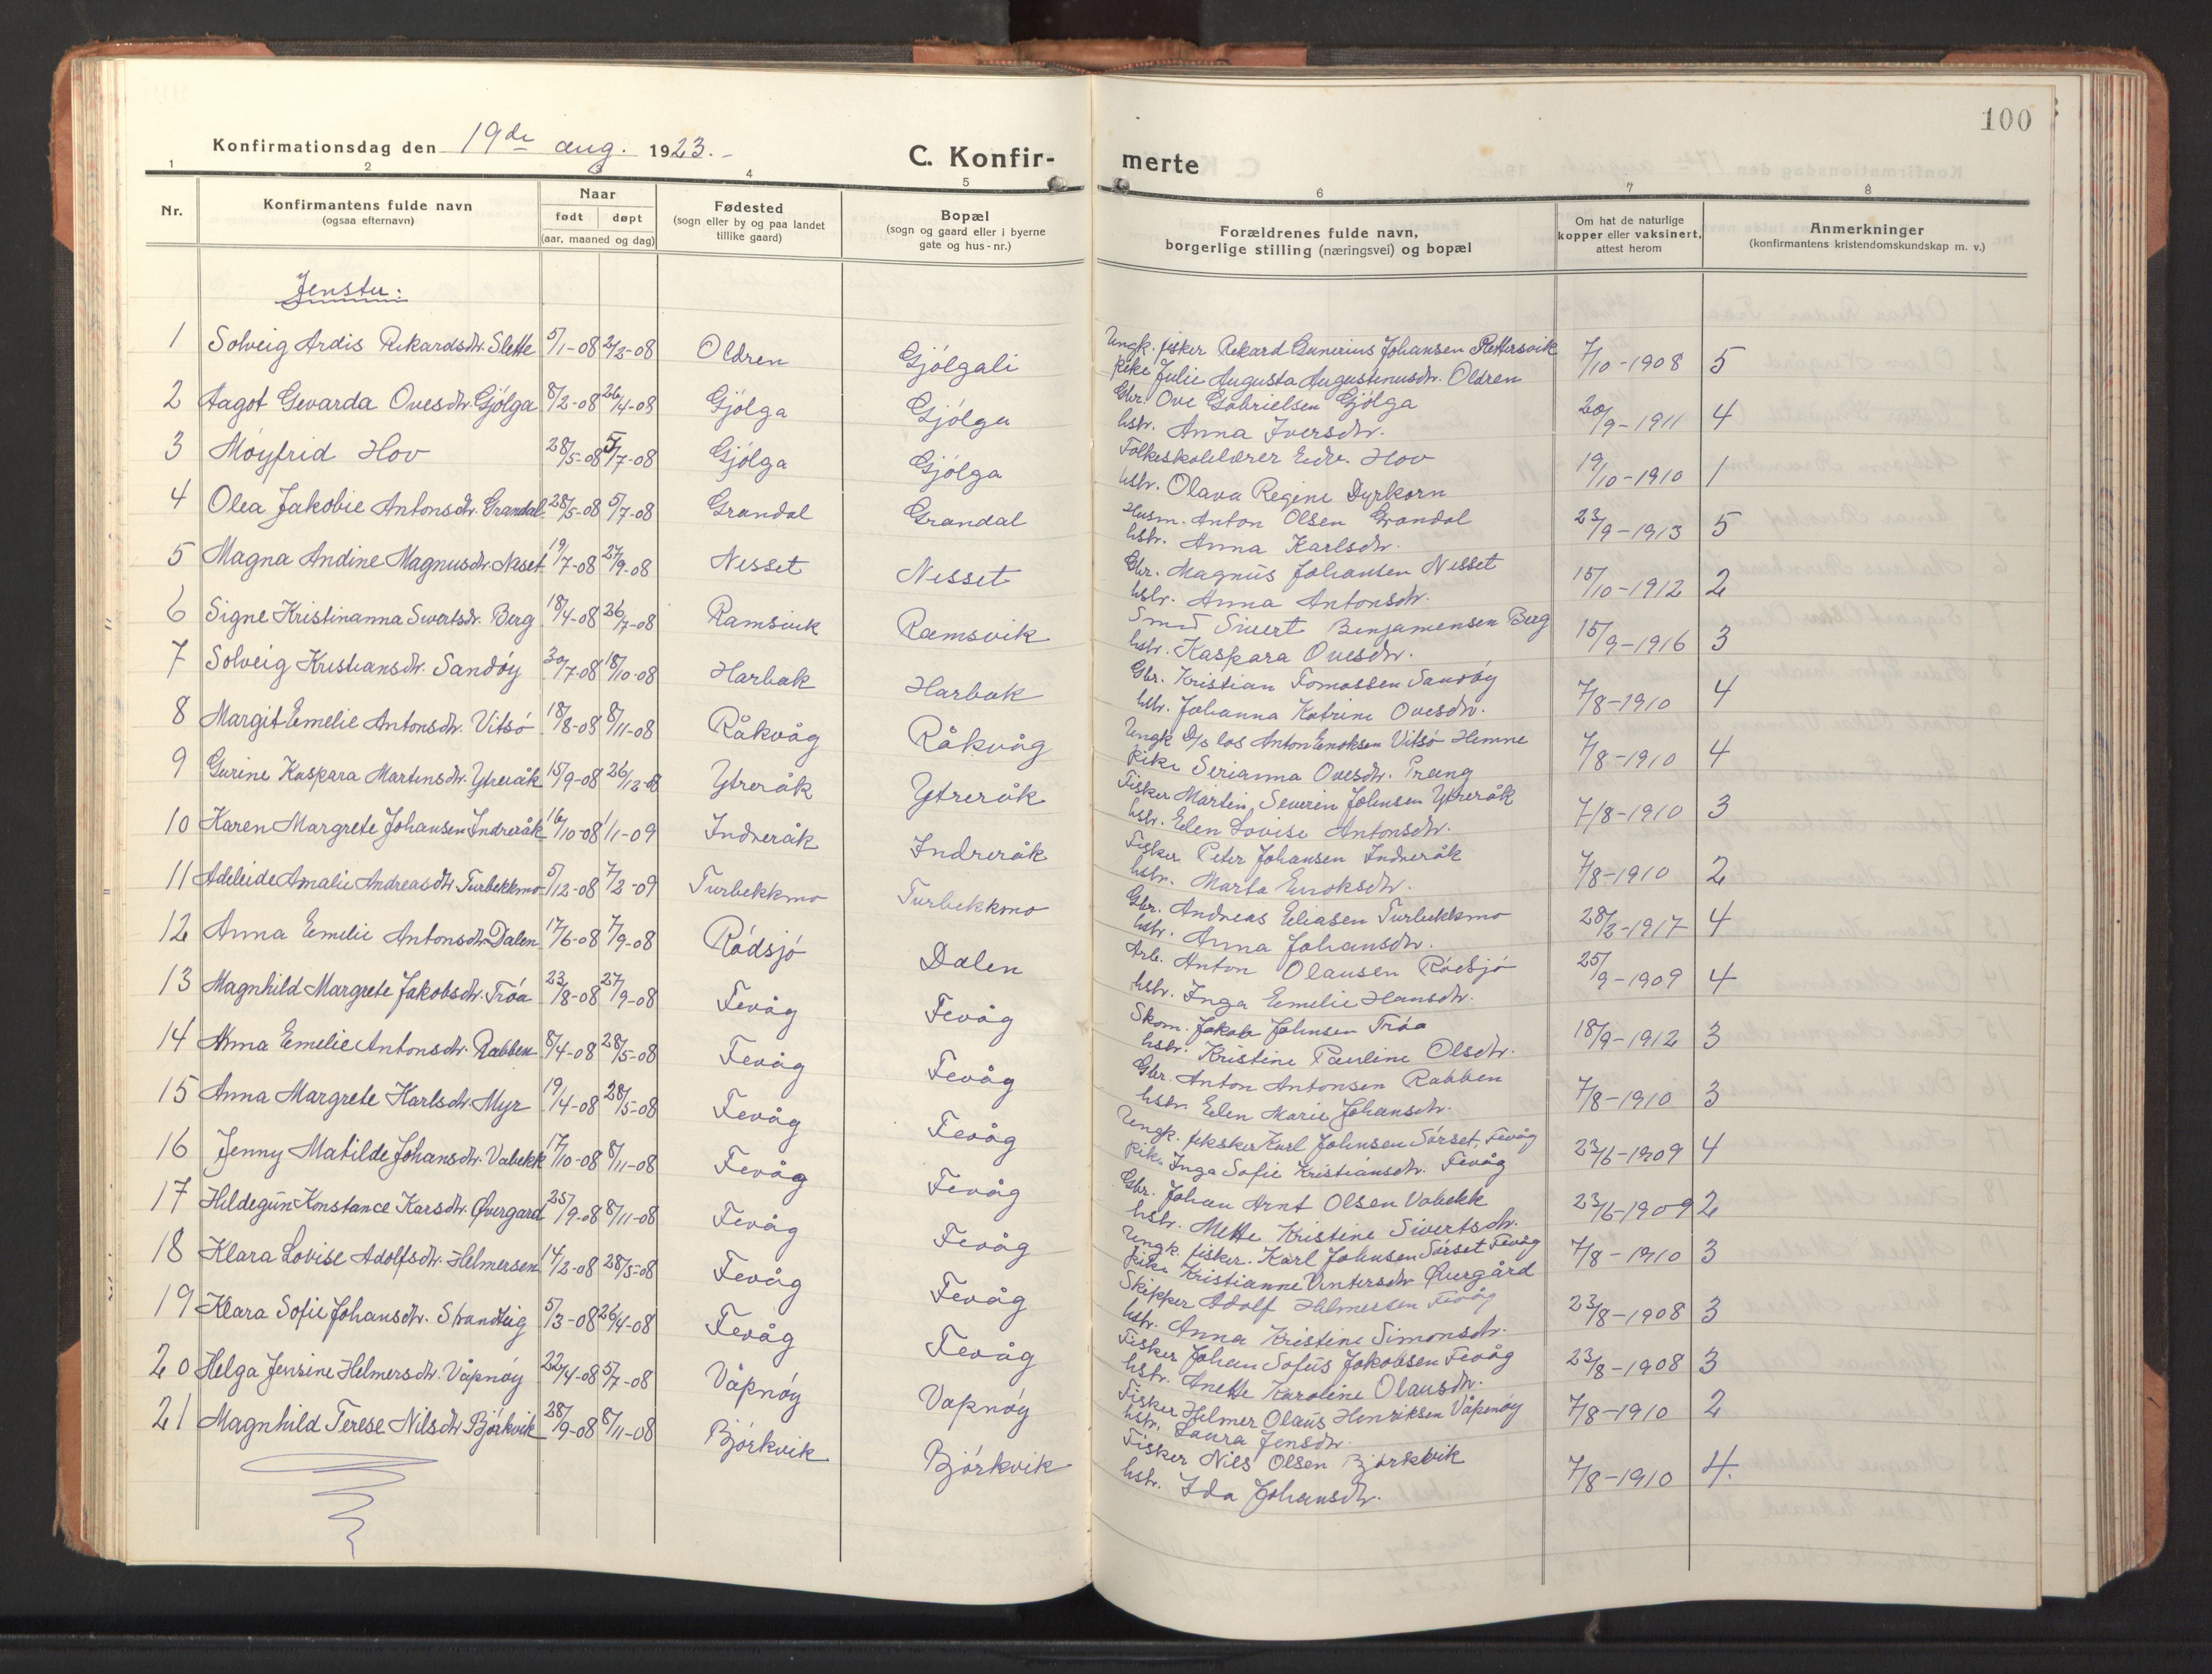 100
Konfirmationsdag den 19de aug. 1923.-
C. Konfir-
merte
1 2 3 4 5 6 7 8
Nr.
Konfirmantens fulde navn
(ogsaa efternavn)
Naar
født døpt
(aar, maaned og dag)
Fødested
(sogn eller by og paa landet
tillike gaard)
Bopæl
(sogn og gaard eller i byerne
gate og hus-nr.)
Forældrenes fulde navn,
borgerlige stilling (næringsvei) og bopæl
Om hat de naturlige
kopper eller vaksinert,
attest herom
Anmerkninger
(konfirmantens kristendomskundskap m. v.)
Jenster:
1 Solveig Ardis Rikardsdtr. Slette 5/1-08 2/2-08 Oldren Gjólgali Ungk. fisker Rikard Gunerius Johansen Rettersvik 7/10-1908 5
Pike Julie Augusta Augustinusdtr. Oldren
2 Aagot Gevarda Ovesdtr. Gjólga 8/2-08 26/4-08 Gjólga Gjólga Gbr. Ove Gabrielsen Gjólga 20/9-1911 4
hstr. Anna Iversdtr.
3 Móyfrid Hov 28/5-08 5/7-08 Gjólga Gjólga Folkeskolelærer Edv. Hov 19/10-1910 1
hstr. Olava Regine Dyrkorn
4 Olea Jakobie Antonsdtr. Grandal 28/5-08 5/7-08 Grandal Grandal Husm. Anton Olsen Grandal 23/9-1913 5
hstr. Anna Karlsdtr.
5 Magna Andine Magnusdtr. Neset 19/7-08 27/9-08 Nesset Nesset Gbr. Magnus Johansen Nesset 15/10-1912 2
hstr. Anna Antonsdtr.
6 Signe Kristinanna Sivertsdr. Berg 18/4-08 26/7-08 Ramsvik Ramsvik Smed Sivert Benjamensen Berg 15/9-1916 3
hstr. Kaspara Ovesdtr.
7 Solveig Kristiansdtr. Sandóy 30/7-08 18/10-08 Harbak Harbak Gbr. Kristian Tomassen Sandóy 7/8-1910 4
hstr. Johanna Katrine Ovesdtr.
8 Margit Emelie Antonsdtr. Vitsó 18/8-08 8/11-08 Råkvåg Råkvåg Ungk D/s los Anton Enoksen Vitsó Hemne 7/8-1910 4
Pike Serianna Ovesdtr. Prang
9 Gurine Kaspara Martinsdtr. Ytreråk 15/9-08 26/12-08 Ytreråk Ytreråk Fisker Martin Severin Johnsen Ytreråk 7/8-1910 3
hstr. Elen Lovise Antonsdtr.
10 Karen Margrete Johansen Indreråk 16/10-08 1/1-09 Indreråk Indreråk Fisker Peter Johansen Indreråk 7/8-1910 2
hstr. Marta Enoksdtr.
11 Adeleide Amalie Andreasdtr. Turbekkmo 5/12-08 7/2-09 Turbekkmo Turbekkmo Gbr. Andreas Eliasen Turbekkmo 28/2-1917 4
hstr. Anna Johansdtr.
12 Anna Emelie Antonsdtr. Dalen 17/6-08 7/9-08 Ródsjó Dalen Arb. Anton Olausen Ródsjó 25/9-1909 4
hstr. Inga Emelie Hansdtr.
13 Magnhild Margrete Jakobsdtr. Tróa 23/8-08 27/9-08 Fevåg Fevåg Skom. Jakob Johnsen Tróa 18/9-1912 3
hstr. Kristine Pauline Olsdtr.
14 Anna Emelie Antonsdtr. Rabben 8/4-08 28/5-08 Fevåg Fevåg Gbr. Anton Antonsen Rabben 7/8-1910 3
hstr. Elen Marie Johansdtr.
15 Anna Margrete Karlsdtr. Myr 19/4-08 28/5-08 Fevåg Fevåg Ungk. Karl Johnsen Sórset, Fevåg 23/6-1909 4
Pike Inga Sofie Kristiansdtr. Fevåg
16 Jenny Matilde Johansdtr. Vabekk 17/10-08 8/11-08 Fevåg Fevåg Gbr. Johan Arnt Olsen Vabekk 23/6-1909 2
hstr. Mette Kristine Sivertsdtr.
17 Hildegun Konstance Karsdtr. Øvergard 25/9-08 8/11-08 Fevåg Fevåg Ungk. fisker. Karl Johnsen Sórset Fevåg 7/8-1910 3
Pike Kristianne Øvergård
18 Klara Lovise Adolfsdtr. Helmersen 14/2-08 28/5-08 Fevåg Fevåg Skipper Adolf Helmersen Fevåg 23/8-1908 3
hstr. Anna Kristine Simonsdtr.
19 Klara Sofie Johansdtr. Strandteig 5/3-08 26/4-08 Fevåg Fevåg Fisker Johan Sofus Jakobsen Fevåg 23/8-1908 3
hstr. Anette Karoline Olausdtr.
20 Helga Jensine Helmersdtr. Våpnóy 22/4-08 5/7-08 Våpnóy Vapnóy Fisker Helmer Olaus Henriksen Våpenóy 7/8-1910 2
hstr. Laura Jensdtr.
21 Magnhild Terese Nilsdtr. Bjórkvik 28/9-08 8/11-08 Bjórkvik Bjórkvik Fisker Nils Olsen Bjórkvik 7/8-1910 4.
hstr. Ida Johansdtr.